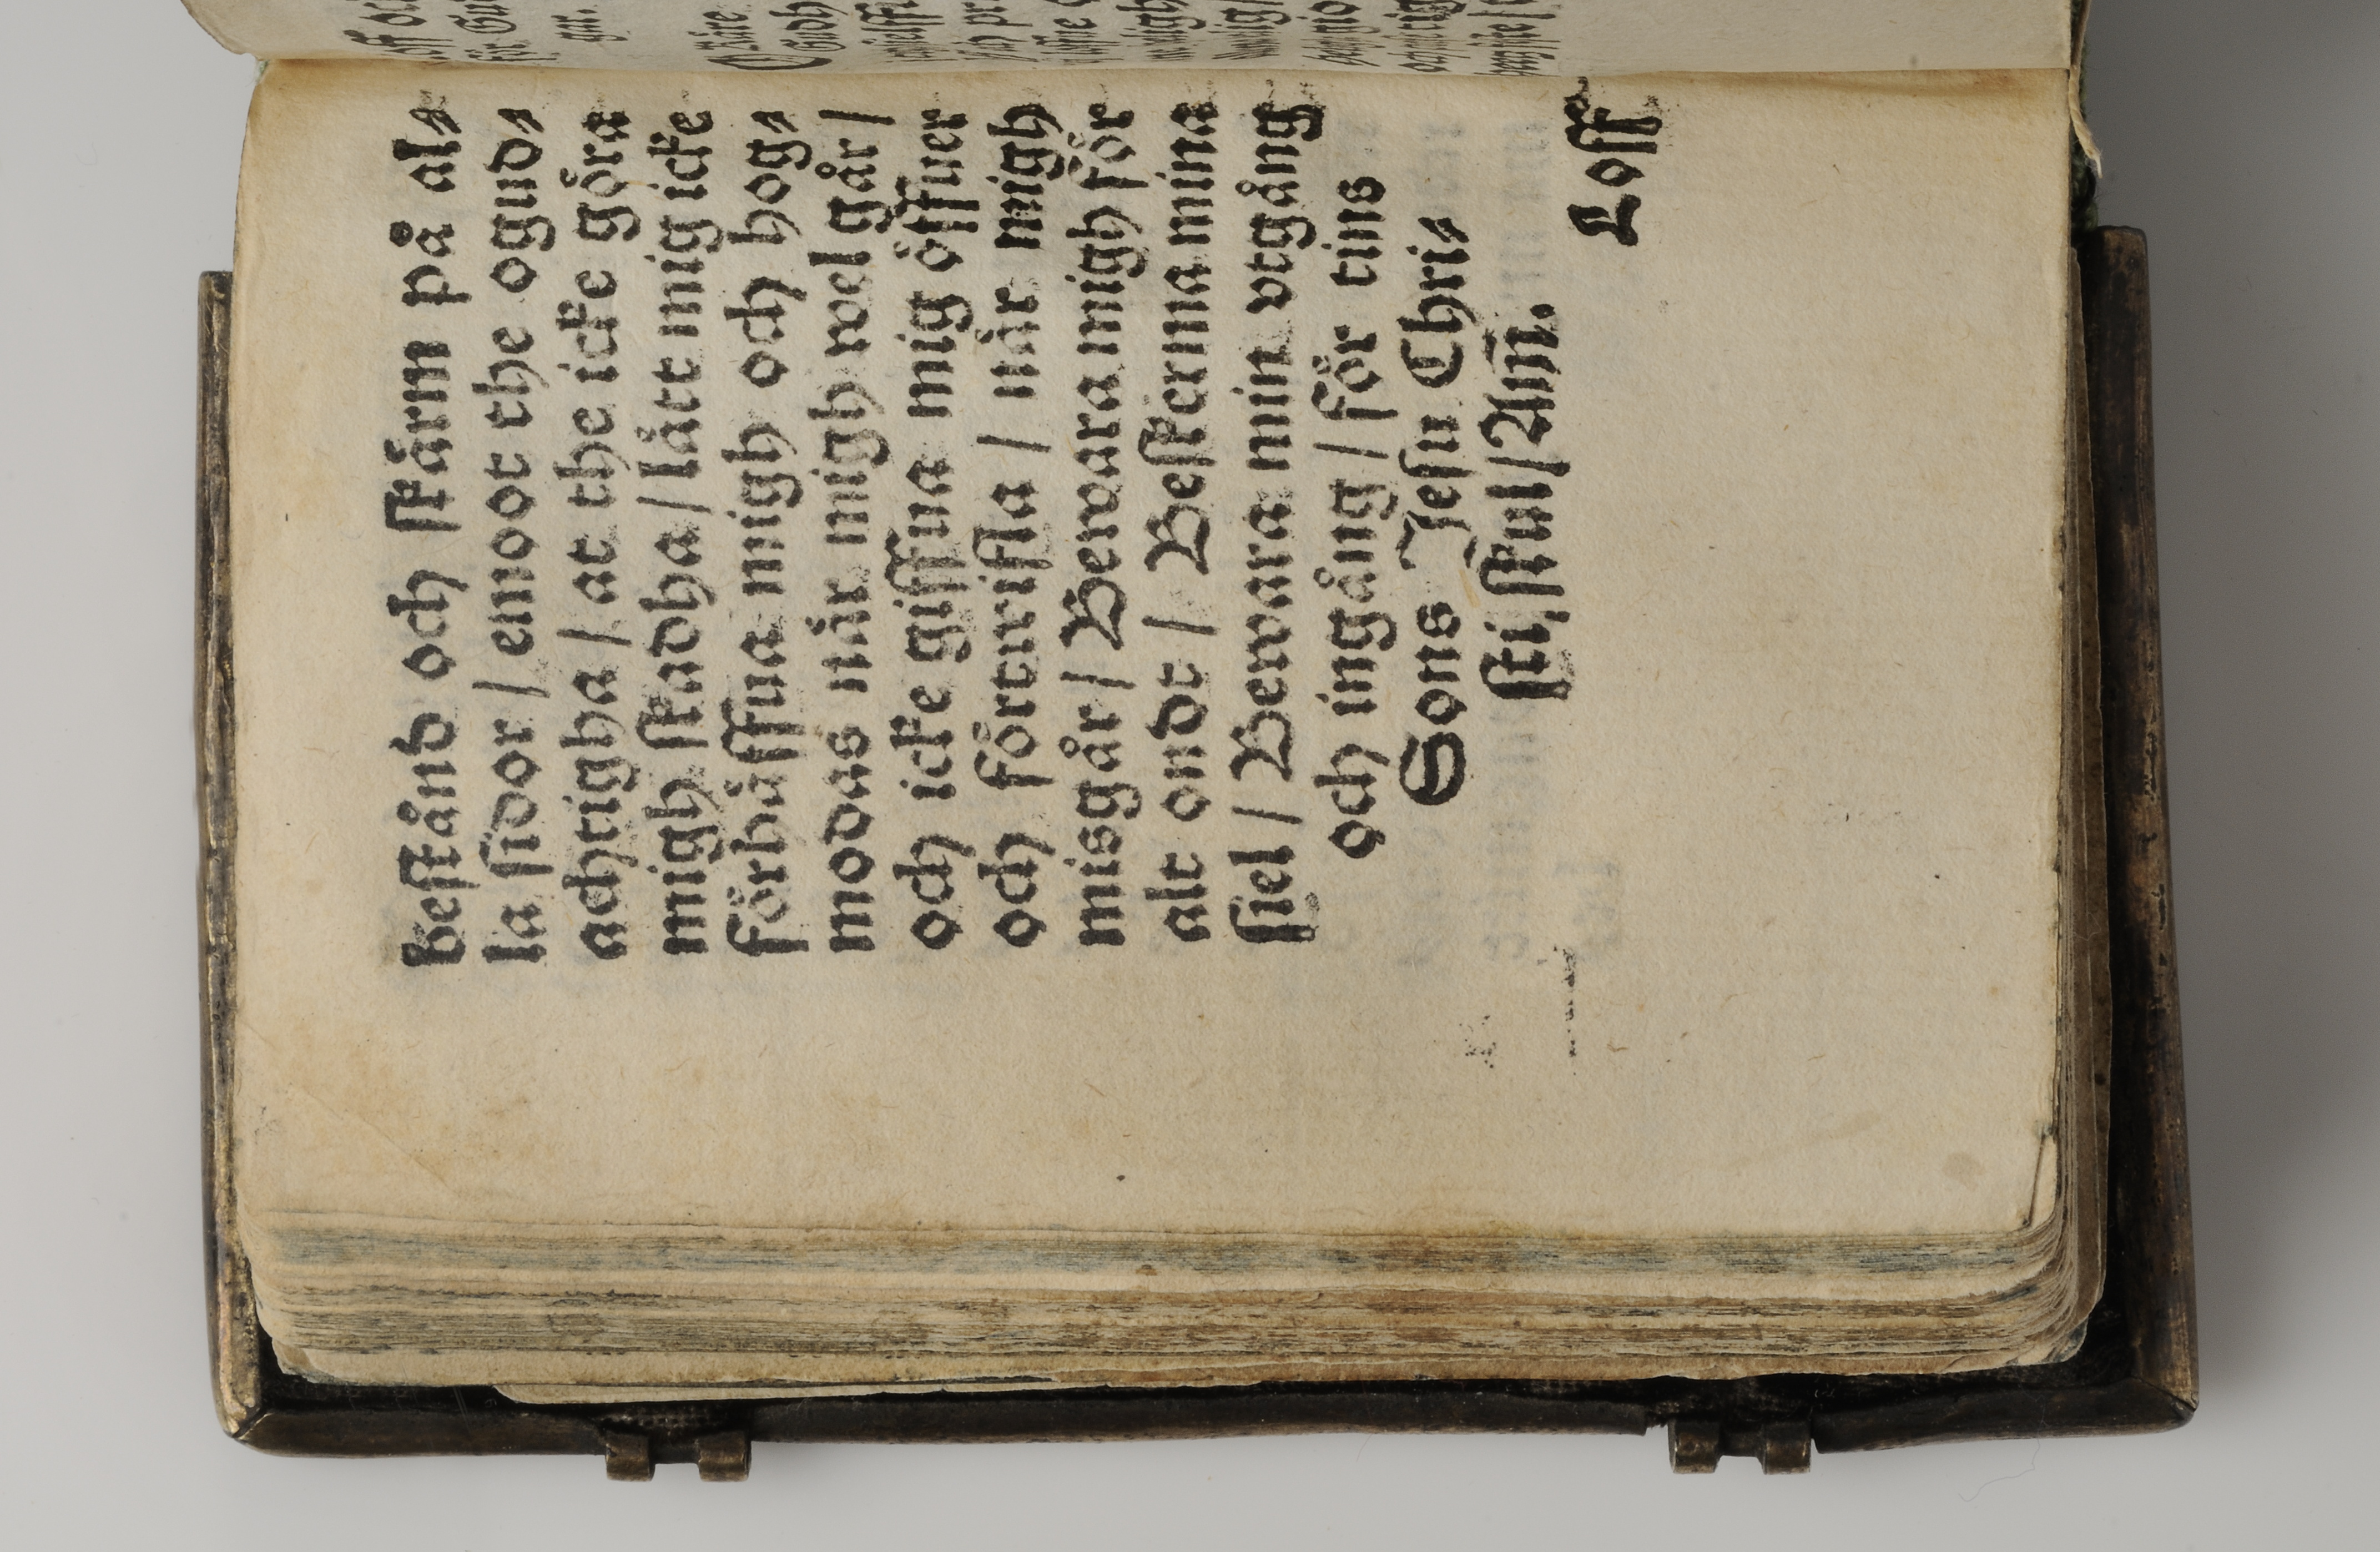 beſtånd och ſkärm på al⸗
la ſidor / emoot the ogud⸗
achtigha / at the icke göra
migh ſkadha / lått mig icke
förhäffua migh och hog⸗
modas när migh wel går /
och icke giffua mig öffuer
och förtwifla / när migh
misgår / Bewara migh för
alt ondt / Beſkerma mina
ſiel / Bewara min vtgång
och ingång / för tins
Sons Jeſu Chri⸗
ſti ſkul / Am̄.
Loff